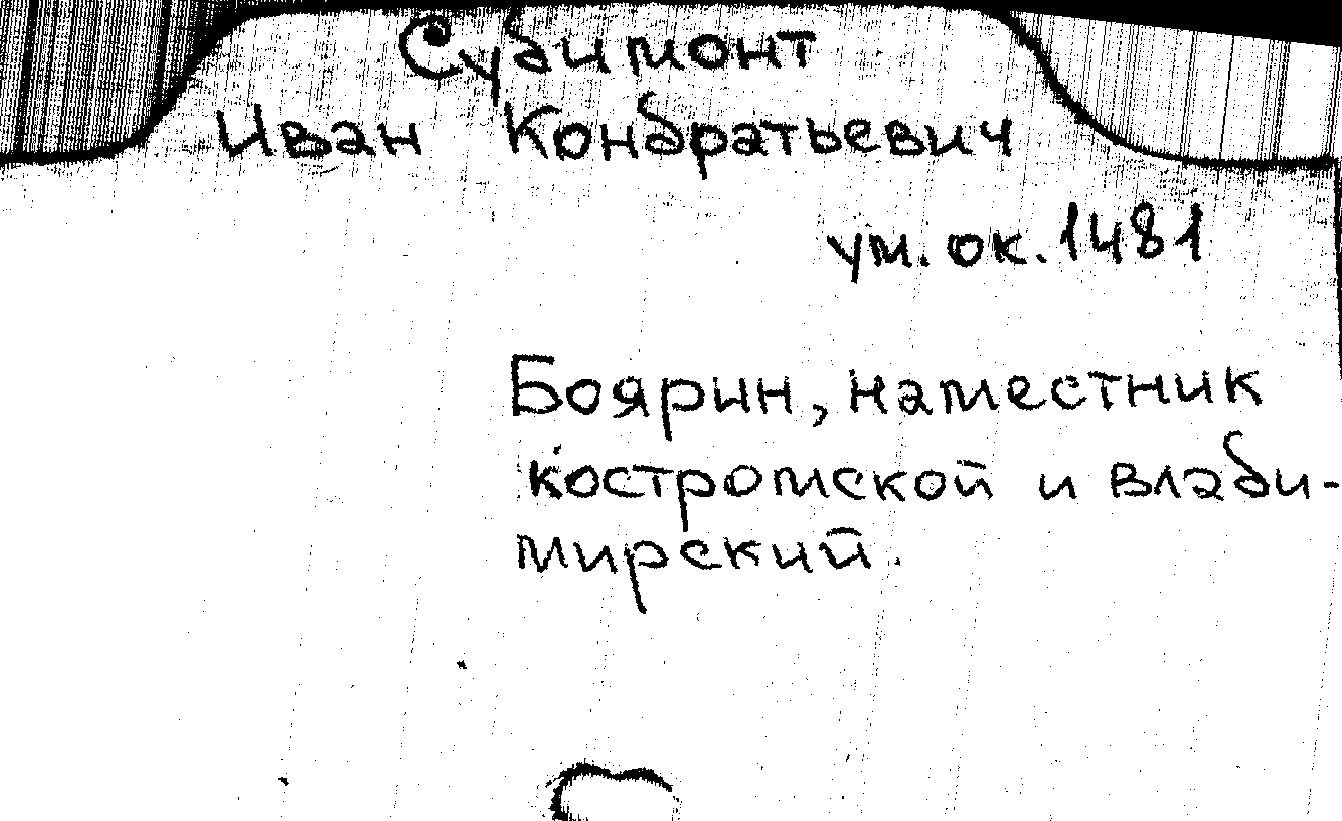 Судимонт
Иван Кондратьевич
ум. ок. 1481
Боярин, наместник
костромской и влади-
мирский.